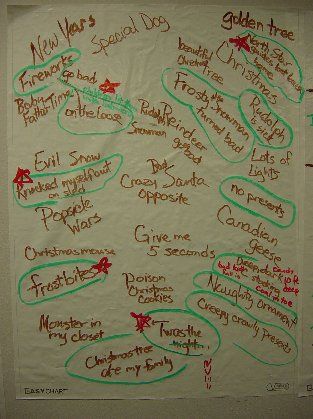 New Years
Special Dog
golden tree
Fireworks
go bad
Baby
Father Time
on the loose
beautiful
Christmas
tree
North Star
Christmas
Frosty snowman
turned bad
Rudolph
is sick
Rudolph
Reindeer
goes bad
Snowman
Lots of
Lights
Evil Snow
Knocked myself out
on sled
Popsicle
Wars
But
Crazy Santa
opposite
no presents
Canadian
geese
Give me
5 seconds
Christmas mouse
Frostbites
Poison
Christmas
Cookies
Deep dark
Naughty Ornament
Creepy crawly presents
Monster in
my closet
Twas the
night
Christmas tree
ate my family
EASYCHART